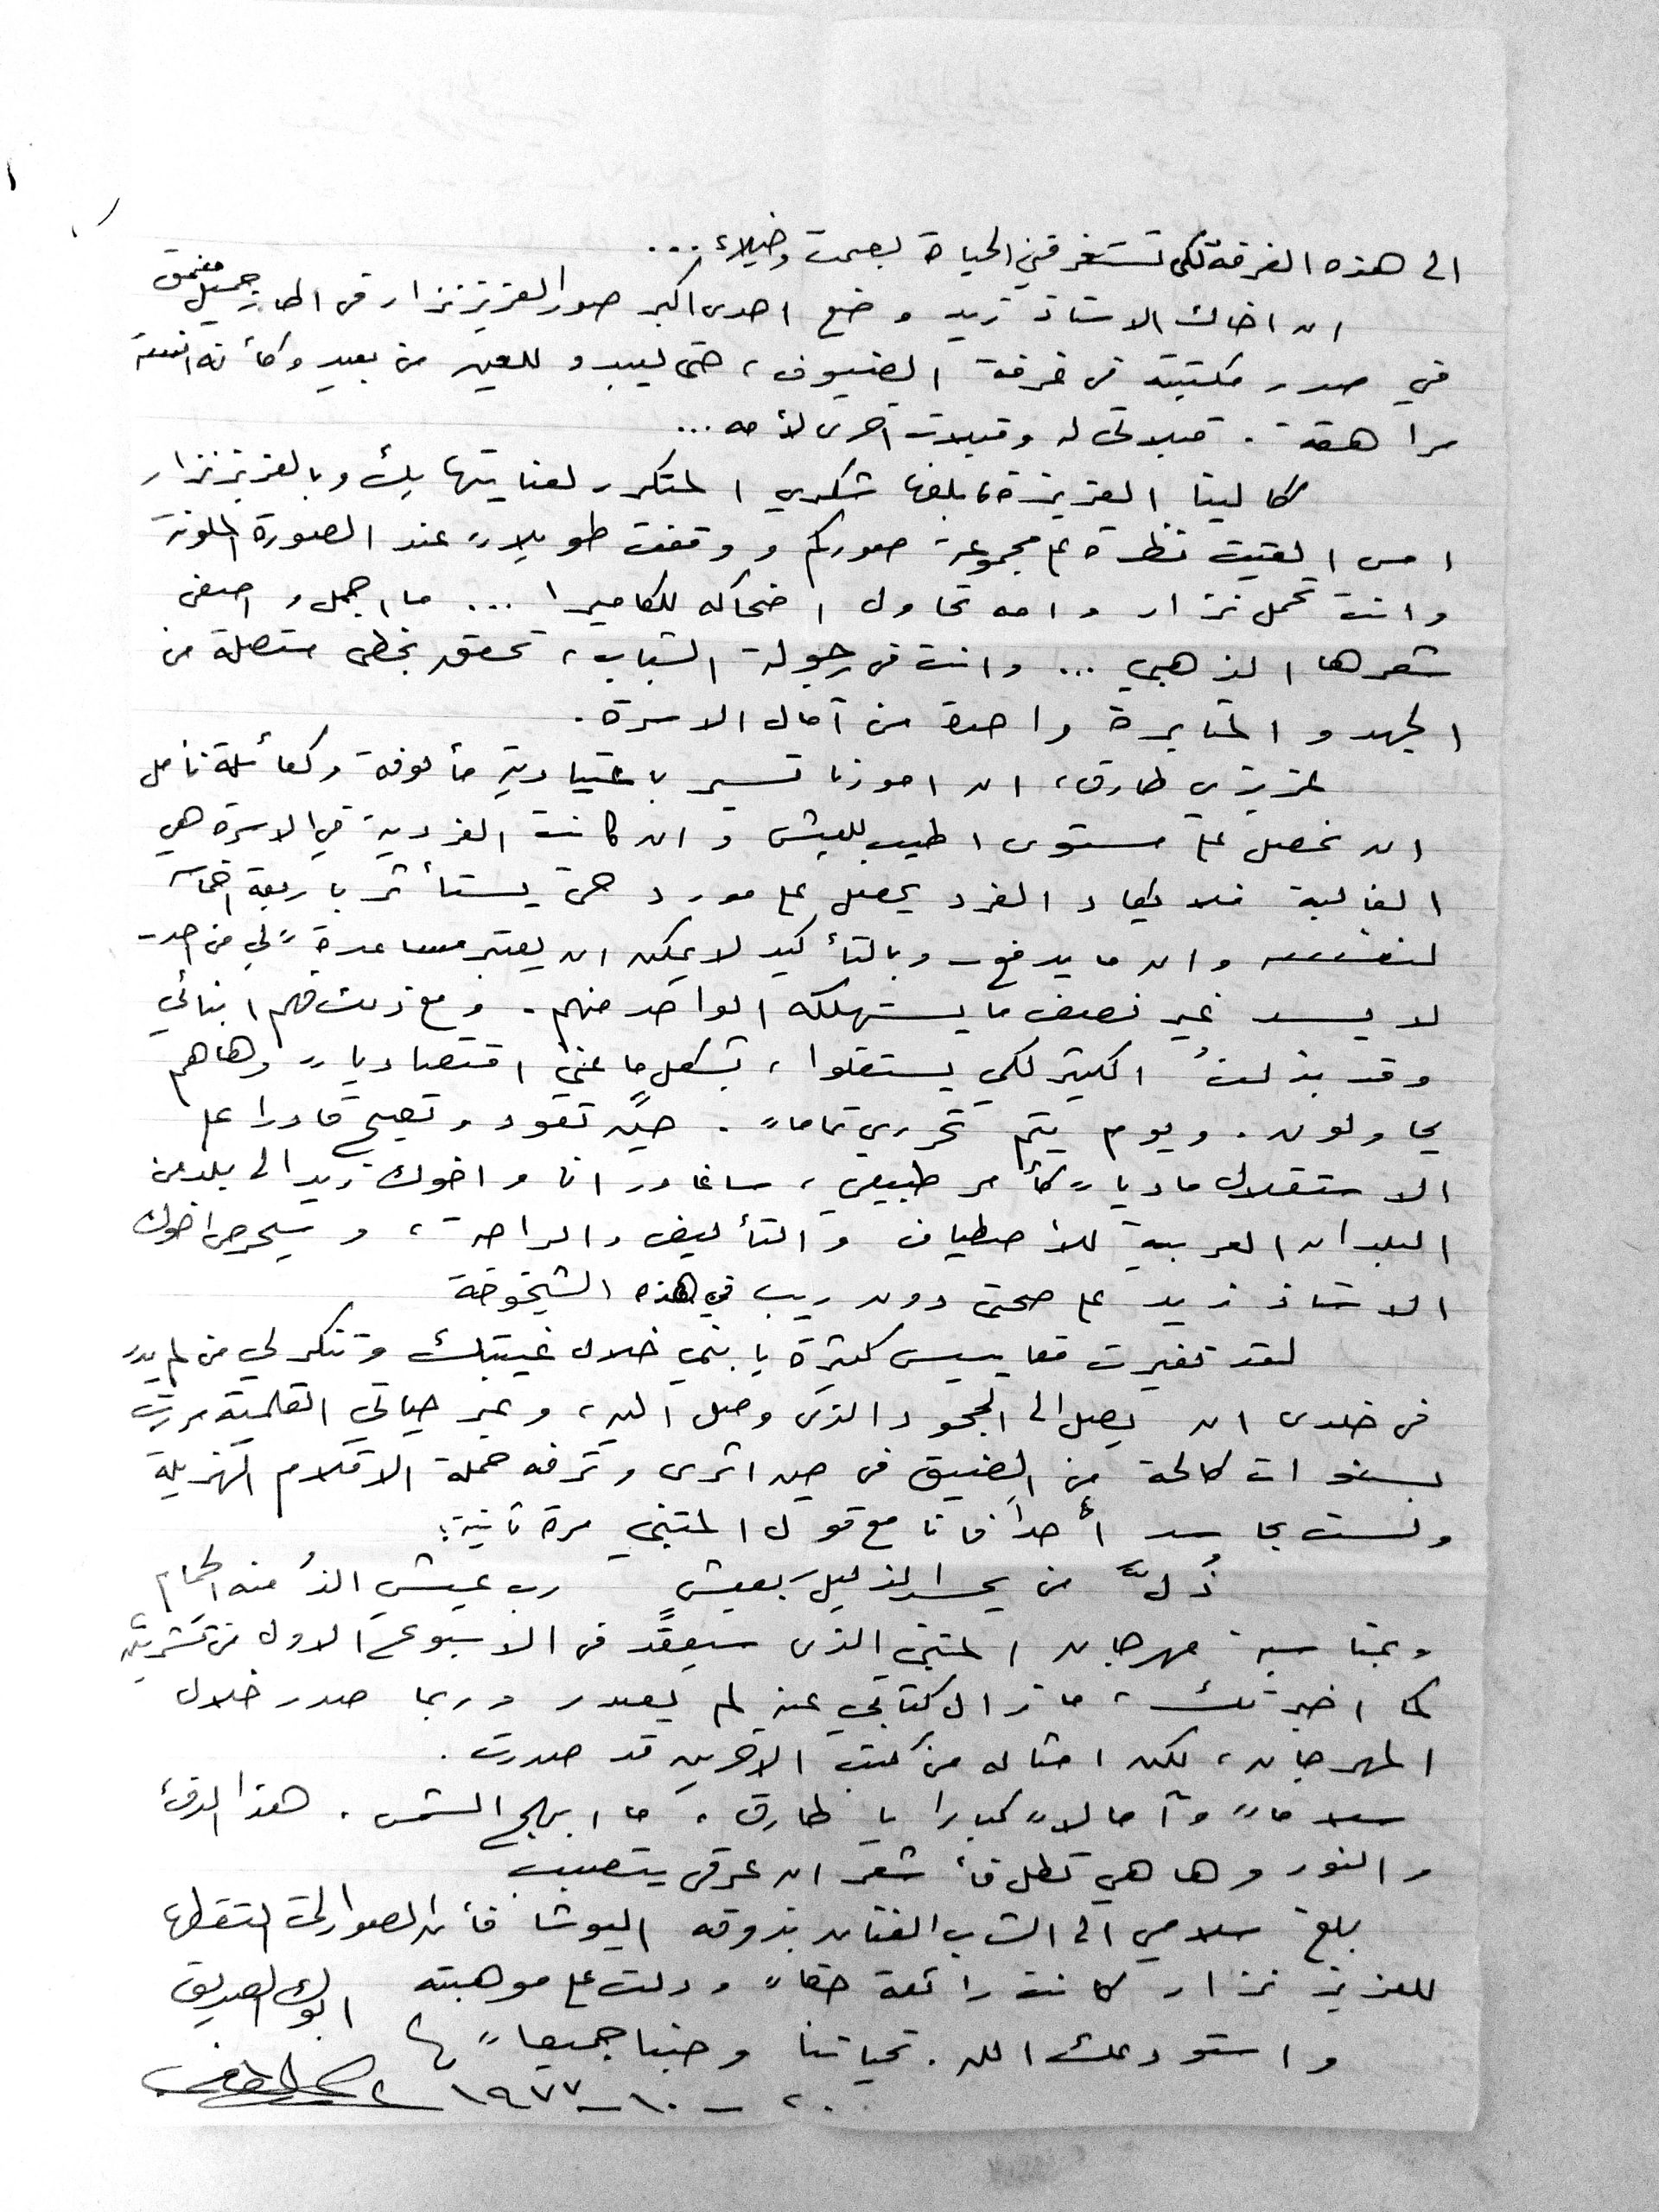 الى هذه الغرفة لكي تستغرقني الحياة بصمت وخيلاء ...
ان اخاك الاستاذ زيد وضع احدى اكبر صور العزيز نزار في اطار جميل
في صدر مكتبته في غرفة الضيوف، حتى ليبدو للعين من بعيد وكأنه
مراهقة. قبلاتي له وقبلات اخرى لأمه ...
كالينا العزيزة، ابلغها شكري المتكرر لعنايتها بك وبالعزيز نزار
امس القيت نظرة على مجموعة صوركم ووقفت طويلاً عند الصورة الملونة
وانت تحمل نزار وامه تحاول اضحاكه للكاميرا ... ما اجمل واصفى
شعرها الذهبي ... وانت في رجولة الشباب، تحقق بخطى متصلة من
الجهد والمثابرة واحدة من آمال الاسرة.
عزيزي طارق، ان امورنا تسير باعتيادية مألوفة وكعائلة نأمل
ان نحصل على مستوى اطيب للعيش وان كانت الفردية في الاسرة هي
الغالبة فلا يكاد الفرد يحصل على مورد حتى يستأثر باربعة اخماسه
لنفسه وان ما يدفع - وبالتأكيد لا يمكن ان يعتبر مساعدة لي من احد -
لا يسد غير نصف ما يستهلكه الواحد منهم. ومع ذلك فهم ابنائي
وقد بذلتُ الكثير لكي يستقلوا، بشكل ما عني اقتصادياً وهاهم
يحاولون. ويوم يتم تحرري تماماً. حين تعود وتصبح قادرا على
الاستقلال مادياً كأمر طبيعي، ساغادر انا واخوك زيد الى بلد من
البلدان العربية للاصطياف والتأليف والراحة، وسيحرص اخوك
الاستاذ زيد على صحتي دون ريب في هذه الشيخوخة
لقد تغيرت مقاييس كثيرة يا بني خلال غيبتك وتنكر لي من لم يدر
في خلدي ان يصل الى الجحود الذي وصل اليه، وعبر حياتي القلمية مررت
بسنوات كالحة من الضيق في حين اثرى وترفه حملة الاقلام الهزيلة
ولست بحاسد أحداً فانا مع قول المتنبي مرة ثانية:
ذُلَّ من يحسد الذليل بعيشٍ رب عيشٍ الذُّ منه الحمام
وبمناسبة مهرجان المتنبي الذي سيعقد في الاسبوع الاول من تشرين
كما اخبرتك، ما زال كتابي عنه لم يصدر وربما صدر خلال
المهرجان، لكن امثاله من كتب الاخرين قد صدرت.
سلاماً وآمالاً كبارا يا طارق، ما ابهج الشمس. هذا الدفء
والنور وها هي تطل فأشعر ان عرقي يتصبب
بلغ سلامي الى الشاب الفنان بذوقه اليوشا فأن الصور التي التقطها
للعزيز نزار كانت رائعة حقاً ودلت على موهبته ابوك الصديق
واستودعك الله. تحياتنا وحبنا جميعاً
٢٠ - ١٠ - ١٩٧٧